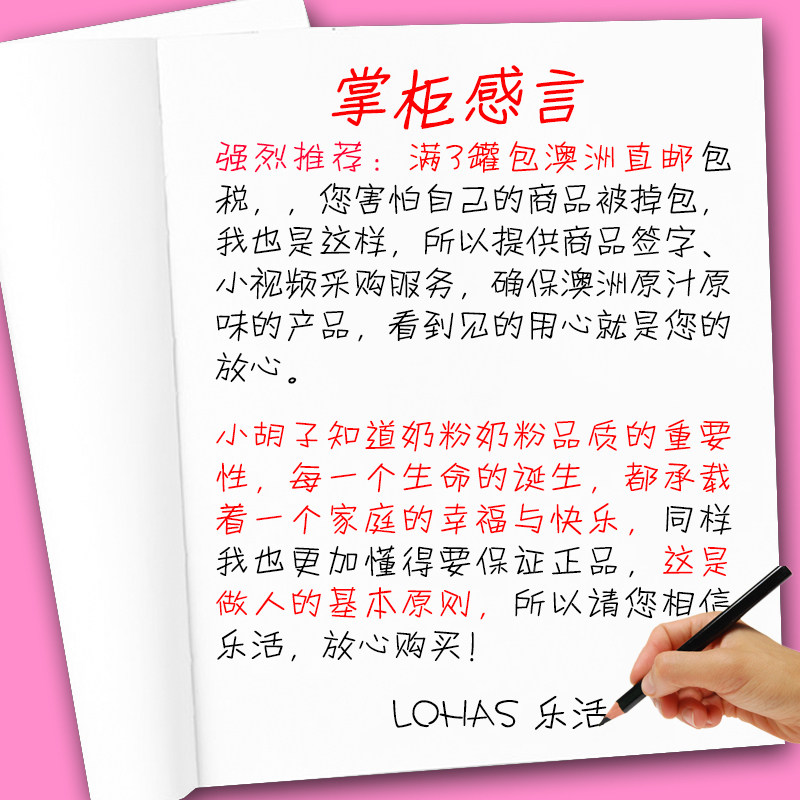 掌柜感言
强烈推荐：满3罐包澳洲直邮包
税，，您害怕自己的商品被掉包，
我也是这样，所以提供商品签字、
小视频采购服务，确保澳洲原汁原
味的产品，看到见的用心就是您的
放心。
小胡子知道奶粉奶粉品质的重要
性，每一个生命的诞生，都承载
着一个家庭的幸福与快乐，同样
我也更加懂得要保证正品，这是
做人的基本原则，所以请您相信
乐活，放心购买！
LOHAS 乐活